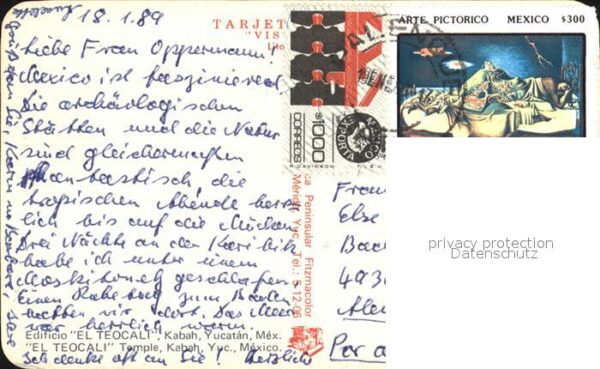 18.1.89
Liebe Frau Oppermann!
Mexico ist faszinierend.
Die archäologischen
Stätten und die Natur
sind gleichermaßen
phantastisch, die
tropischen Abende herr-
lich bis auf die Mücken.
Drei Nächte an der Karibik
habe ich unter einem
Moskitonetz geschlafen
Einen Ruhetag zum Baden
hatten wir dort. Das Meer
war herrlich warm.
Ich denke oft an Sie! Herzlich
Edificio "EL TEOCALI", Kabah, Yucatán, Méx.
"EL TEOCALI" Temple, Kabah, Yuc., México.
TARJET
"VIS
CORREOS
$1000
MEXICO
EXPORTA
ARTE PICTORICO MEXICO $300
ca Peninsular Fitzmacolor
Mérida, Yuc. Tel.: 5-12-06
Frau
Else
493
Por a
privacy protection
Datenschutz